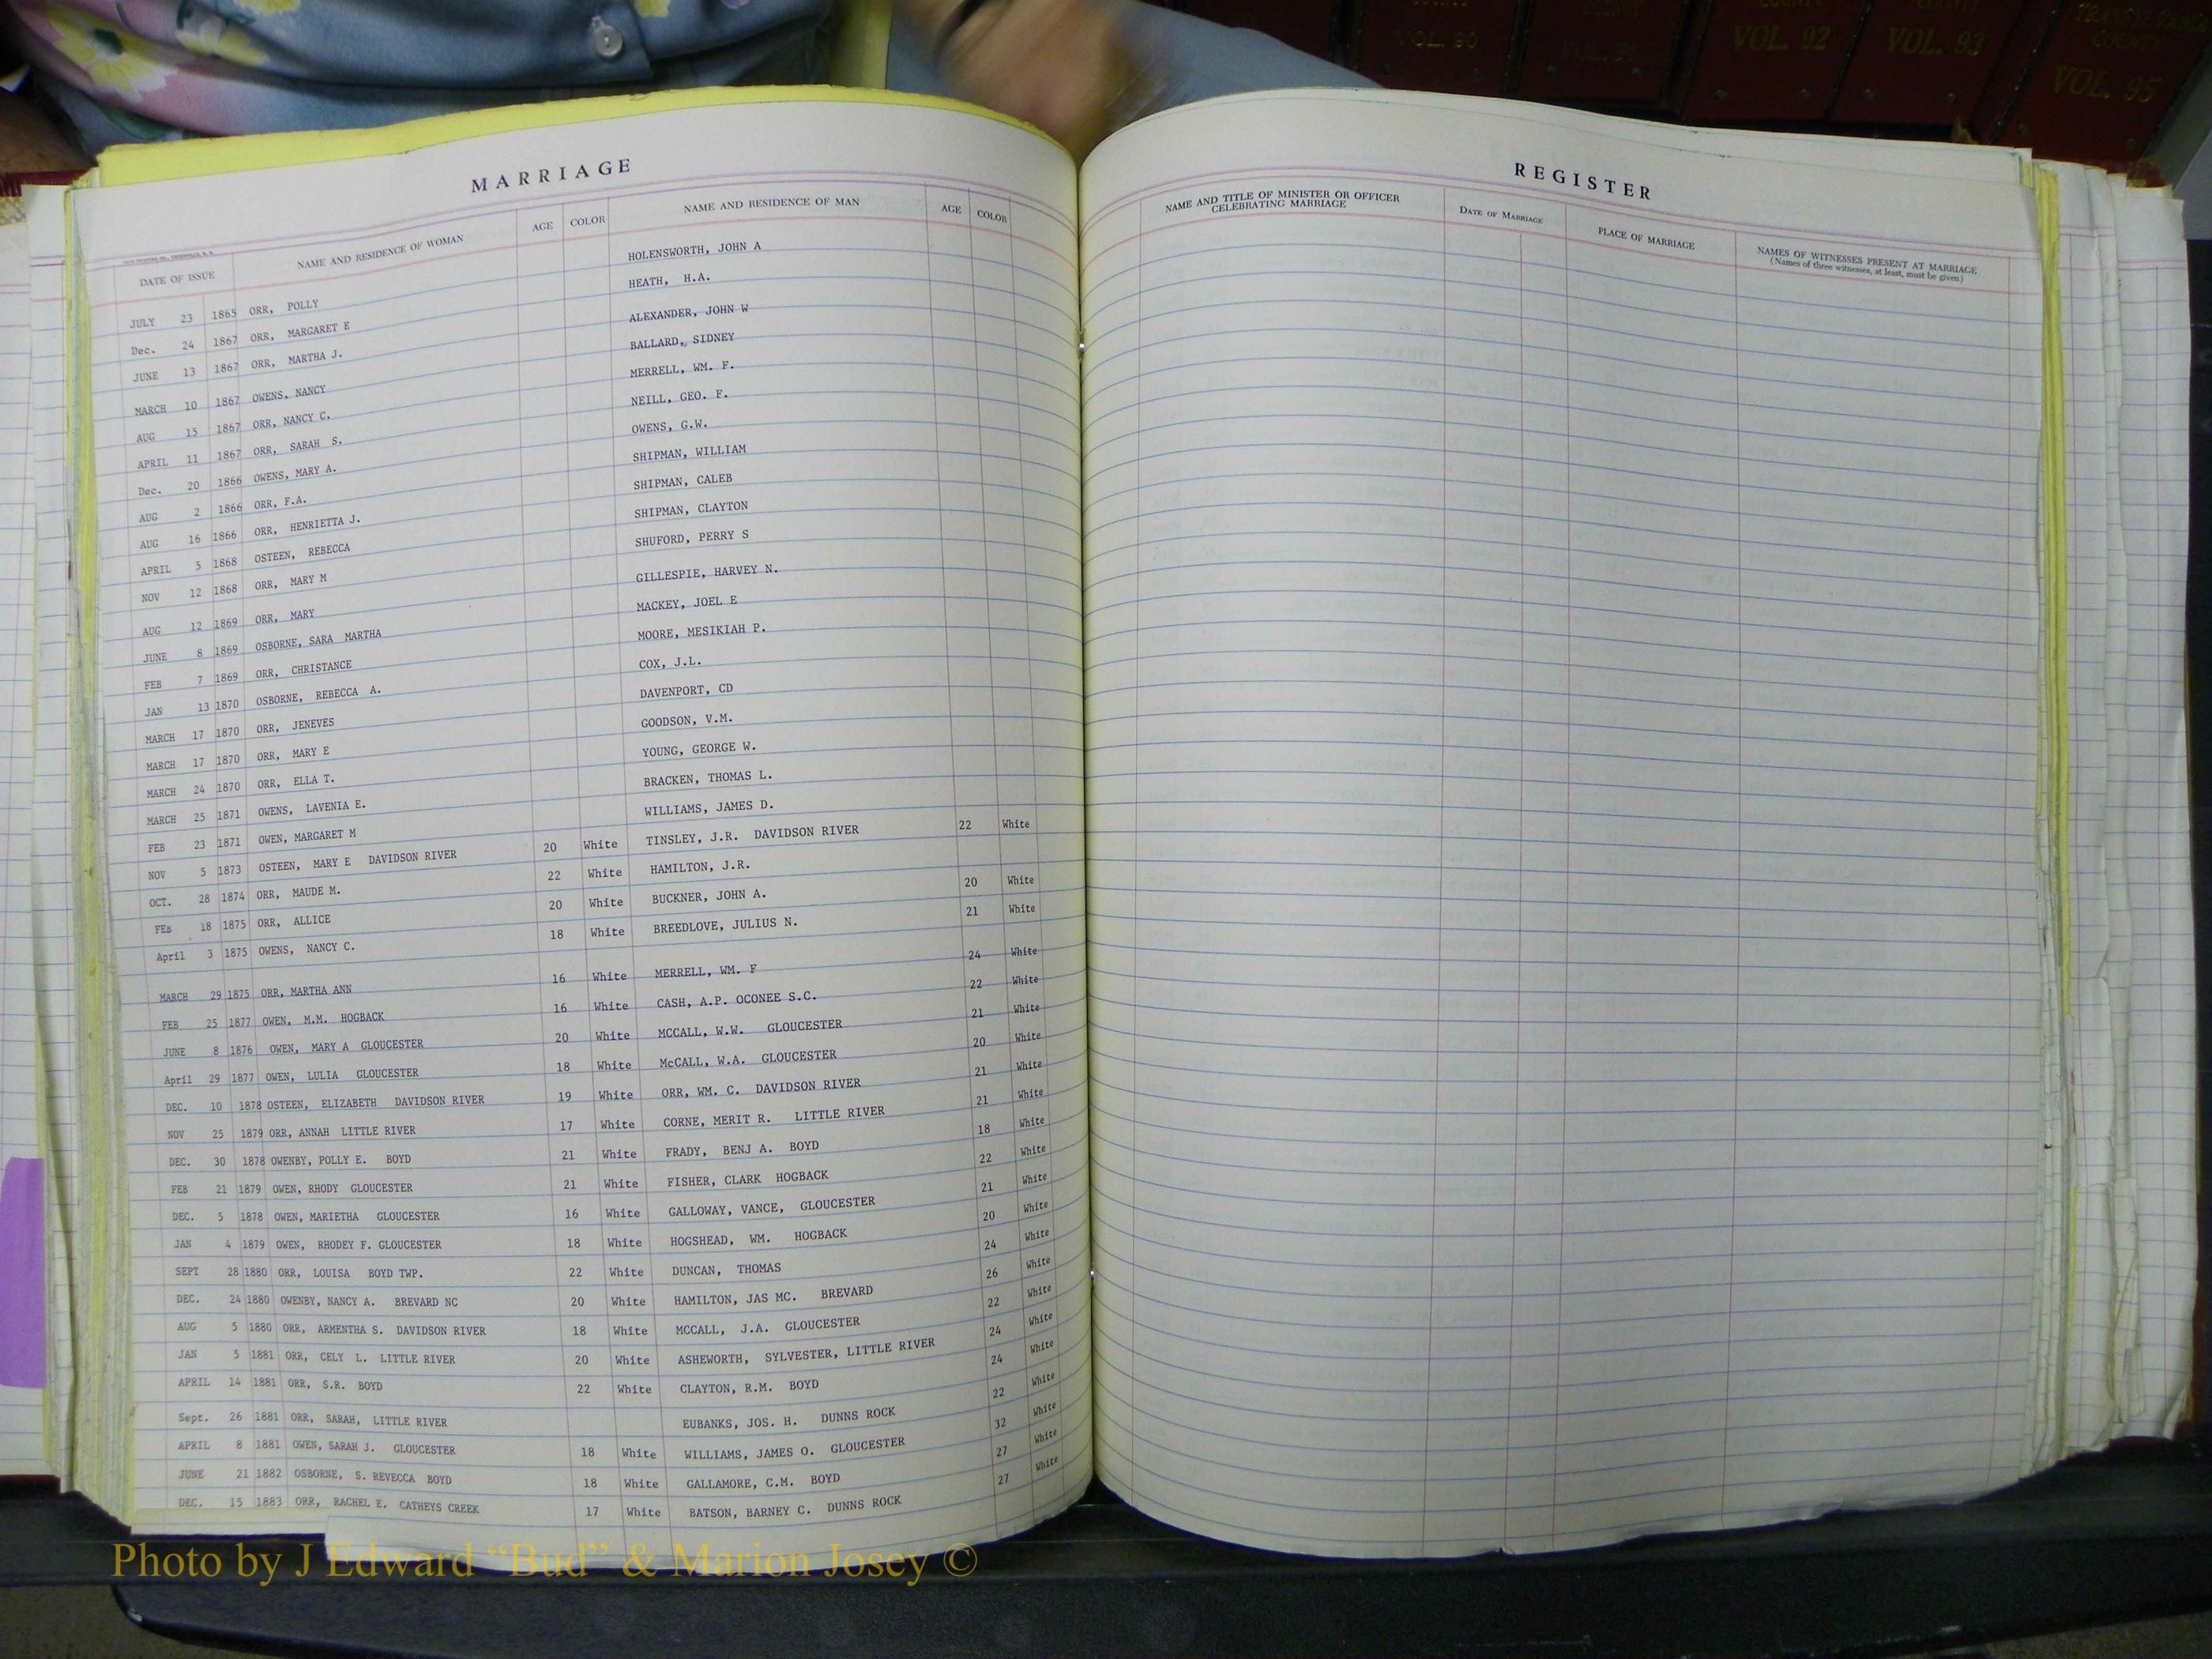 COUNTY VOL. 90
COUNTY VOL. 91
COUNTY VOL. 92
COUNTY VOL. 93
TRANSYLVANIA COUNTY VOL. 95
MARRIAGE
REGISTER
DATE OF ISSUE NAME AND RESIDENCE OF WOMAN AGE COLOR NAME AND RESIDENCE OF MAN AGE COLOR
NAME AND TITLE OF MINISTER OR OFFICER CELEBRATING MARRIAGE DATE OF MARRIAGE PLACE OF MARRIAGE NAMES OF WITNESSES PRESENT AT MARRIAGE
(Names of three witnesses, at least, must be given)
JULY 23 1865 ORR, POLLY HOLENSWORTH, JOHN A
Dec. 24 1867 ORR, MARGARET E HEATH, H.A.
JUNE 13 1867 ORR, MARTHA J. ALEXANDER, JOHN W
MARCH 10 1867 OWENS, NANCY BALLARD, SIDNEY
AUG 15 1867 ORR, NANCY C. MERRELL, WM. F.
APRIL 11 1867 ORR, SARAH S. NEILL, GEO. F.
Dec. 20 1866 OWENS, MARY A. OWENS, G.W.
AUG 2 1866 ORR, F.A. SHIPMAN, WILLIAM
AUG 16 1866 ORR, HENRIETTA J. SHIPMAN, CALEB
APRIL 5 1868 OSTEEN, REBECCA SHIPMAN, CLAYTON
NOV 12 1868 ORR, MARY M SHUFORD, PERRY S
AUG 12 1869 ORR, MARY GILLESPIE, HARVEY N.
JUNE 8 1869 OSBORNE, SARA MARTHA MACKEY, JOEL E
FEB 7 1869 ORR, CHRISTANCE MOORE, MESIKIAH P.
JAN 13 1870 OSBORNE, REBECCA A. COX, J.L.
MARCH 17 1870 ORR, JENEVES DAVENPORT, CD
MARCH 17 1870 ORR, MARY E GOODSON, V.M.
MARCH 24 1870 ORR, ELLA T. YOUNG, GEORGE W.
MARCH 25 1871 OWENS, LAVENIA E. BRACKEN, THOMAS L.
FEB 23 1871 OWEN, MARGARET M WILLIAMS, JAMES D.
NOV 5 1873 OSTEEN, MARY E DAVIDSON RIVER 20 White TINSLEY, J.R. DAVIDSON RIVER 22 White
OCT. 28 1874 ORR, MAUDE M. 22 White HAMILTON, J.R.
FEB 18 1875 ORR, ALLICE 20 White BUCKNER, JOHN A. 20 White
April 3 1875 OWENS, NANCY C. 18 White BREEDLOVE, JULIUS N. 21 White
MARCH 29 1875 ORR, MARTHA ANN 16 White MERRELL, WM. F 24 White
FEB 25 1877 OWEN, M.M. HOGBACK 16 White CASH, A.P. OCONEE S.C. 22 White
JUNE 8 1876 OWEN, MARY A GLOUCESTER 20 White MCCALL, W.W. GLOUCESTER 21 White
April 29 1877 OWEN, LULIA GLOUCESTER 18 White McCALL, W.A. GLOUCESTER 20 White
DEC. 10 1878 OSTEEN, ELIZABETH DAVIDSON RIVER 19 White ORR, WM. C. DAVIDSON RIVER 21 White
NOV 25 1879 ORR, ANNAH LITTLE RIVER 17 White CORNE, MERIT R. LITTLE RIVER 21 White
DEC. 30 1878 OWENBY, POLLY E. BOYD 21 White FRADY, BENJ A. BOYD 18 White
FEB 21 1879 OWEN, RHODY GLOUCESTER 21 White FISHER, CLARK HOGBACK 22 White
DEC. 5 1878 OWEN, MARIETHA GLOUCESTER 16 White GALLOWAY, VANCE, GLOUCESTER 21 White
JAN 4 1879 OWEN, RHODEY F. GLOUCESTER 18 White HOGSHEAD, WM. HOGBACK 20 White
SEPT 28 1880 ORR, LOUISA BOYD TWP. 22 White DUNCAN, THOMAS 24 White
DEC. 24 1880 OWENBY, NANCY A. BREVARD NC 20 White HAMILTON, JAS MC. BREVARD 26 White
AUG 5 1880 ORR, ARMENTHA S. DAVIDSON RIVER 18 White MCCALL, J.A. GLOUCESTER 22 White
JAN 5 1881 ORR, CELY L. LITTLE RIVER 20 White ASHEWORTH, SYLVESTER, LITTLE RIVER 24 White
APRIL 14 1881 ORR, S.R. BOYD 22 White CLAYTON, R.M. BOYD 24 White
Sept. 26 1881 ORR, SARAH, LITTLE RIVER EUBANKS, JOS. H. DUNNS ROCK 22 White
APRIL 8 1881 OWEN, SARAH J. GLOUCESTER 18 White WILLIAMS, JAMES O. GLOUCESTER 32 White
JUNE 21 1882 OSBORNE, S. REVECCA BOYD 18 White GALLAMORE, C.M. BOYD 27 White
DEC. 15 1883 ORR, RACHEL E. CATHEYS CREEK 17 White BATSON, BARNEY C. DUNNS ROCK 27 White
Photo by J Edward “Bud” & Marion Josey ©